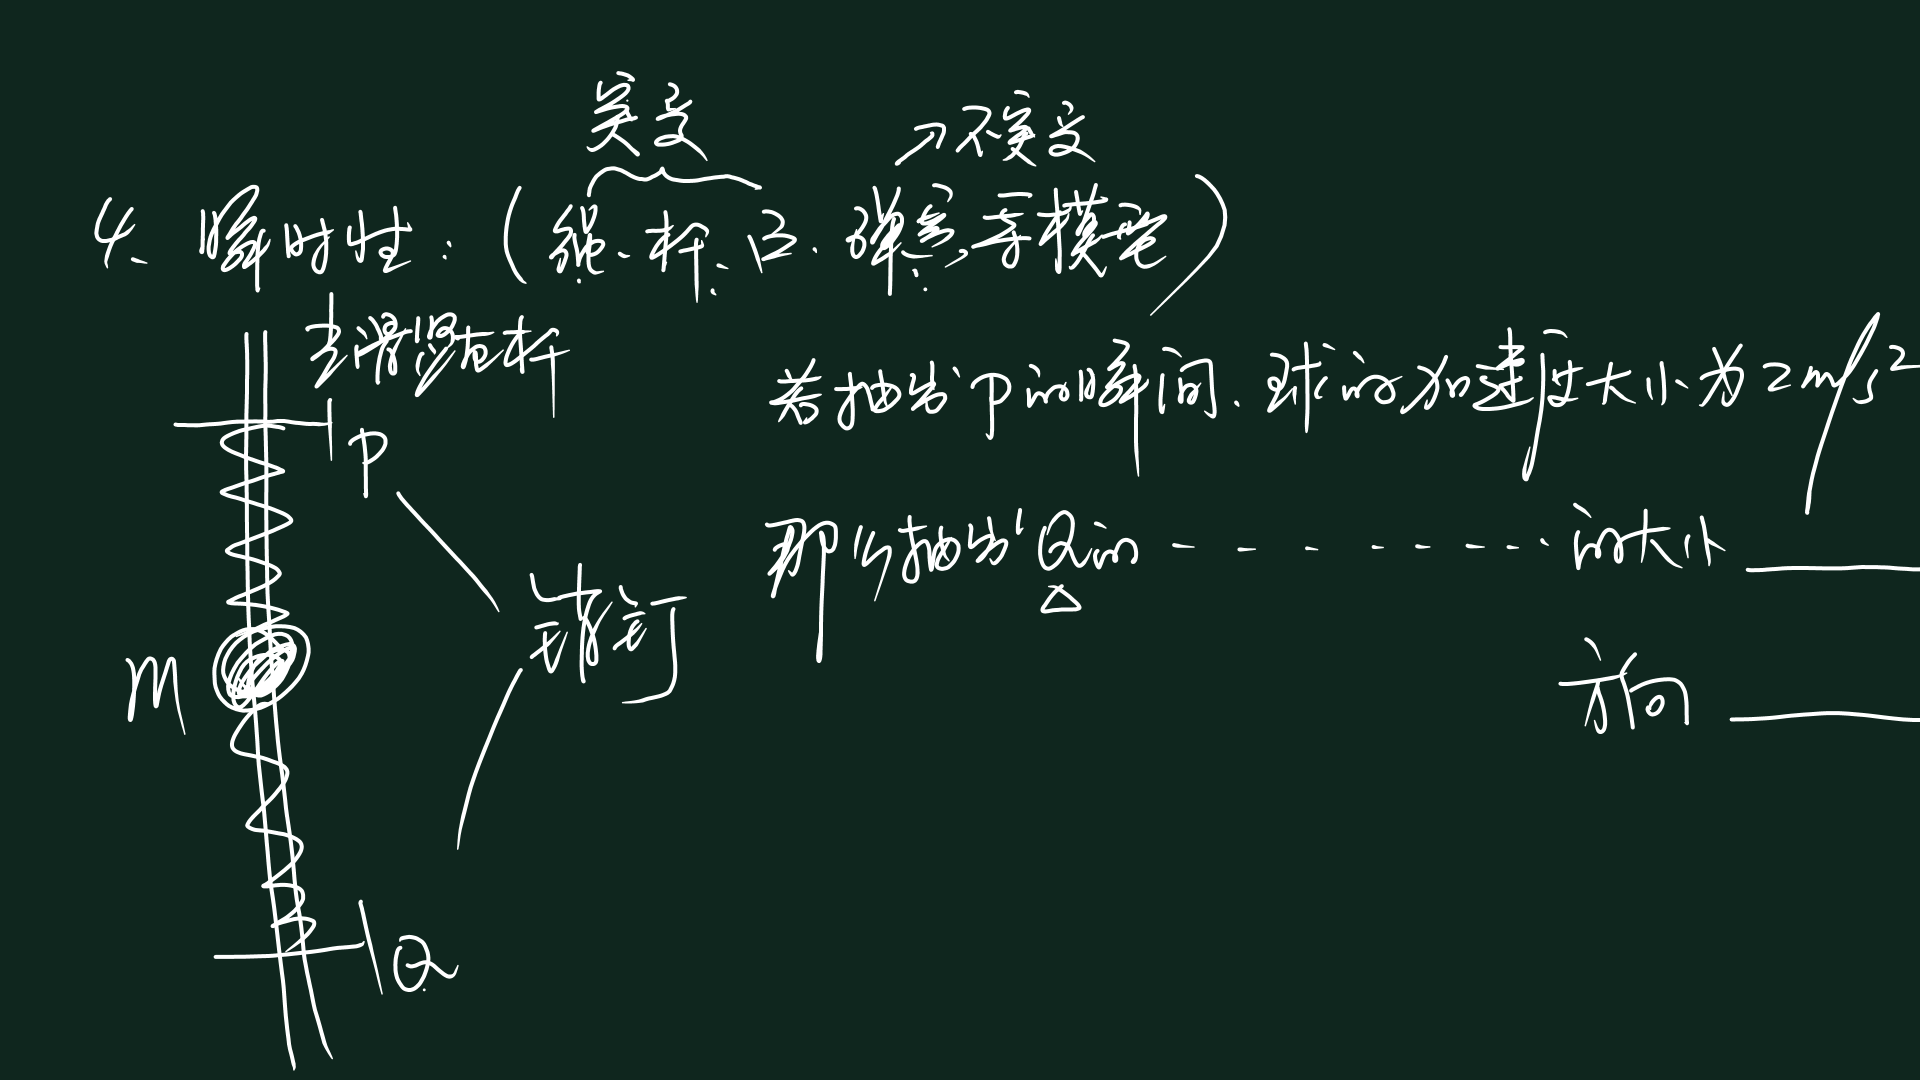 突变
→不突变
4、瞬时性：（绳、杆、口、弹簧，等模型）
光滑竖直杆
若抽出P的瞬间，球的加速度大小为2m/s²
P
那么抽出Q的-------的大小
销钉
M
方向
Q